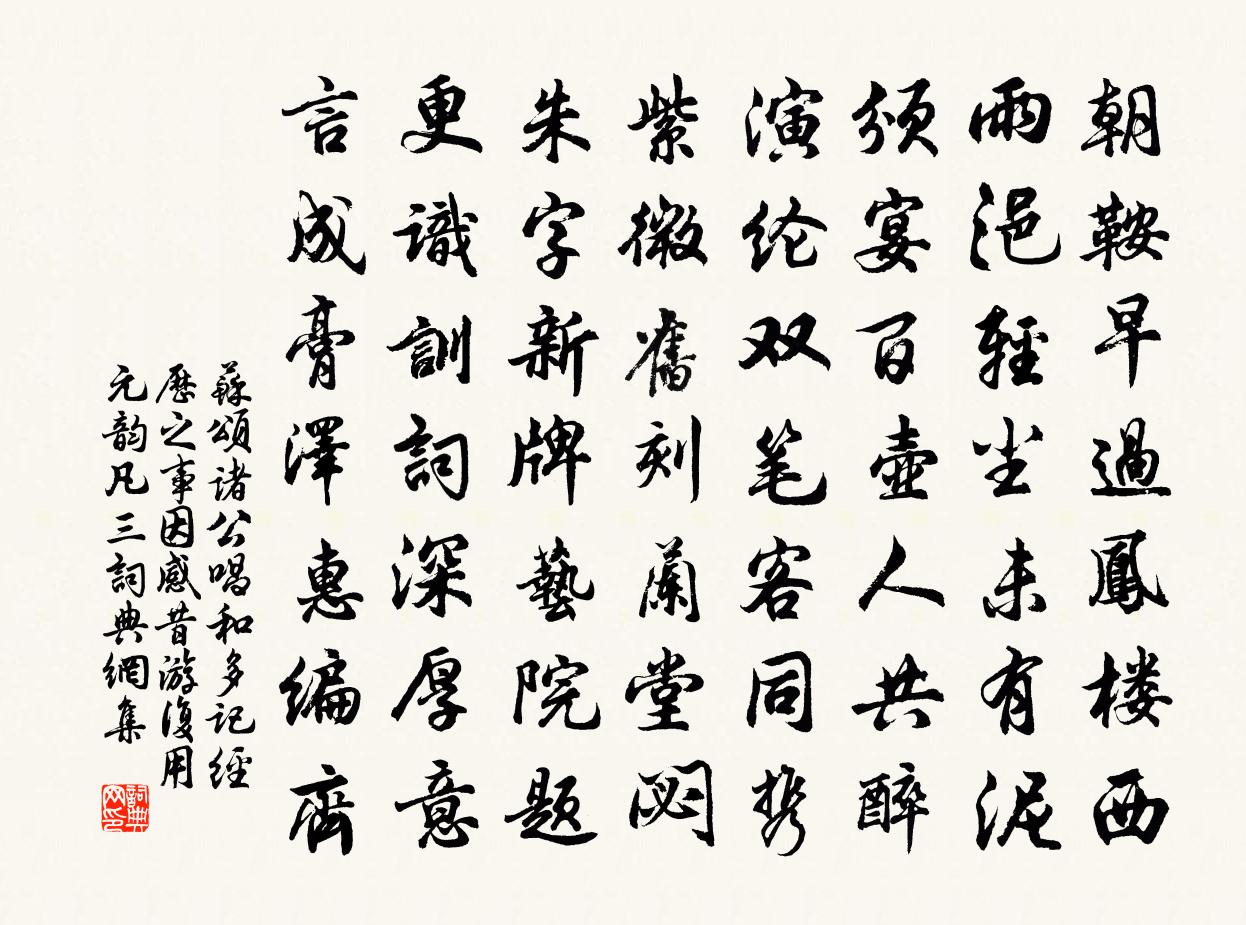 朝鞍早過鳳楼西
雨浥輕尘未有泥
須宴百壺人共醉
演纶双笔客同携
紫微舊刻蘭堂閟
朱字新牌藝院题
更識訓詞深厚意
言成膏澤惠编齊
蘇頌诸公唱和多记經
歷之事因感昔游復用
元韵凡三詞典網集
詞典网印